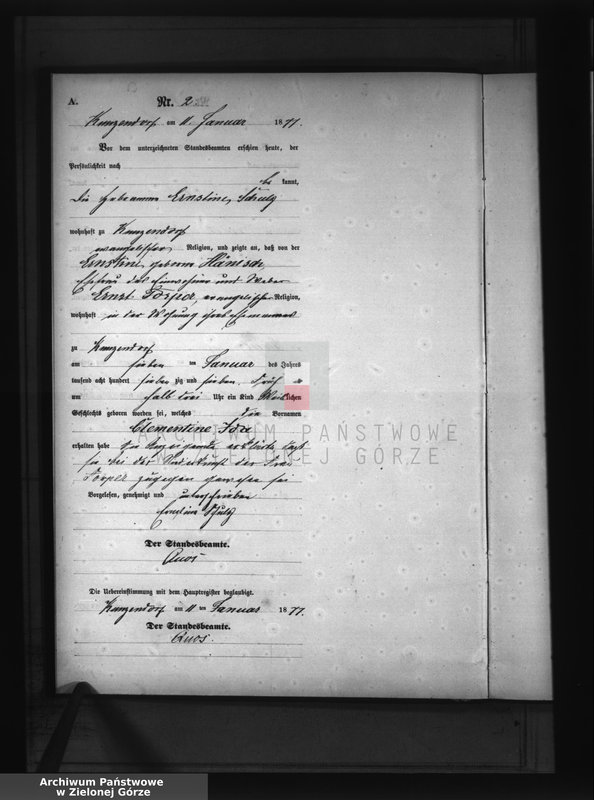 A. Nr. 2
Kunzendorf am 11. Januar 1877.
Vor dem unterzeichneten Standesbeamten erschien heute, der
Persönlichkeit nach
be kannt,
die Hebamme Ernstine Schulz
wohnhaft zu Kunzendorf
evangelischer Religion, und zeigte an, daß von der
Ernstine geborne Hänisch
Ehefrau des Einwohner und Weber
Ernst Törper, evangelischer Religion,
wohnhaft in der Wohnung ihres Ehemannes
zu Kunzendorf
am sieben ten Januar des Jahres
tausend acht hundert sieben zig und sieben Früh
um halb drei Uhr ein Kind Weiblichen
Geschlechts geboren worden sei, welches die Vornamen
Clementine
erhalten habe Die Hebeamme erklärte daß
sie bei der Niederkunft der Frau
Törper zugegen gewesen sei
Vorgelesen, genehmigt und unterschrieben
Ernstine Schulz
Der Standesbeamte.
Quos
Die Uebereinstimmung mit dem Hauptregister beglaubigt.
Kunzendorf am 11 ten Januar 1877.
Der Standesbeamte.
Quos.
ARCHIWUM PAŃSTWOWE
W ZIELONEJ GÓRZE
Archiwum Państwowe
w Zielonej Górze